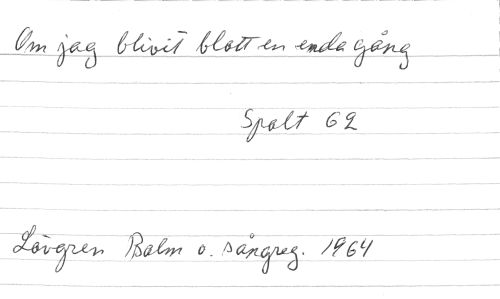 Om jag blivit blott en enda gång
Spalt 62
Lövgren Psalm o. sångreg. 1964